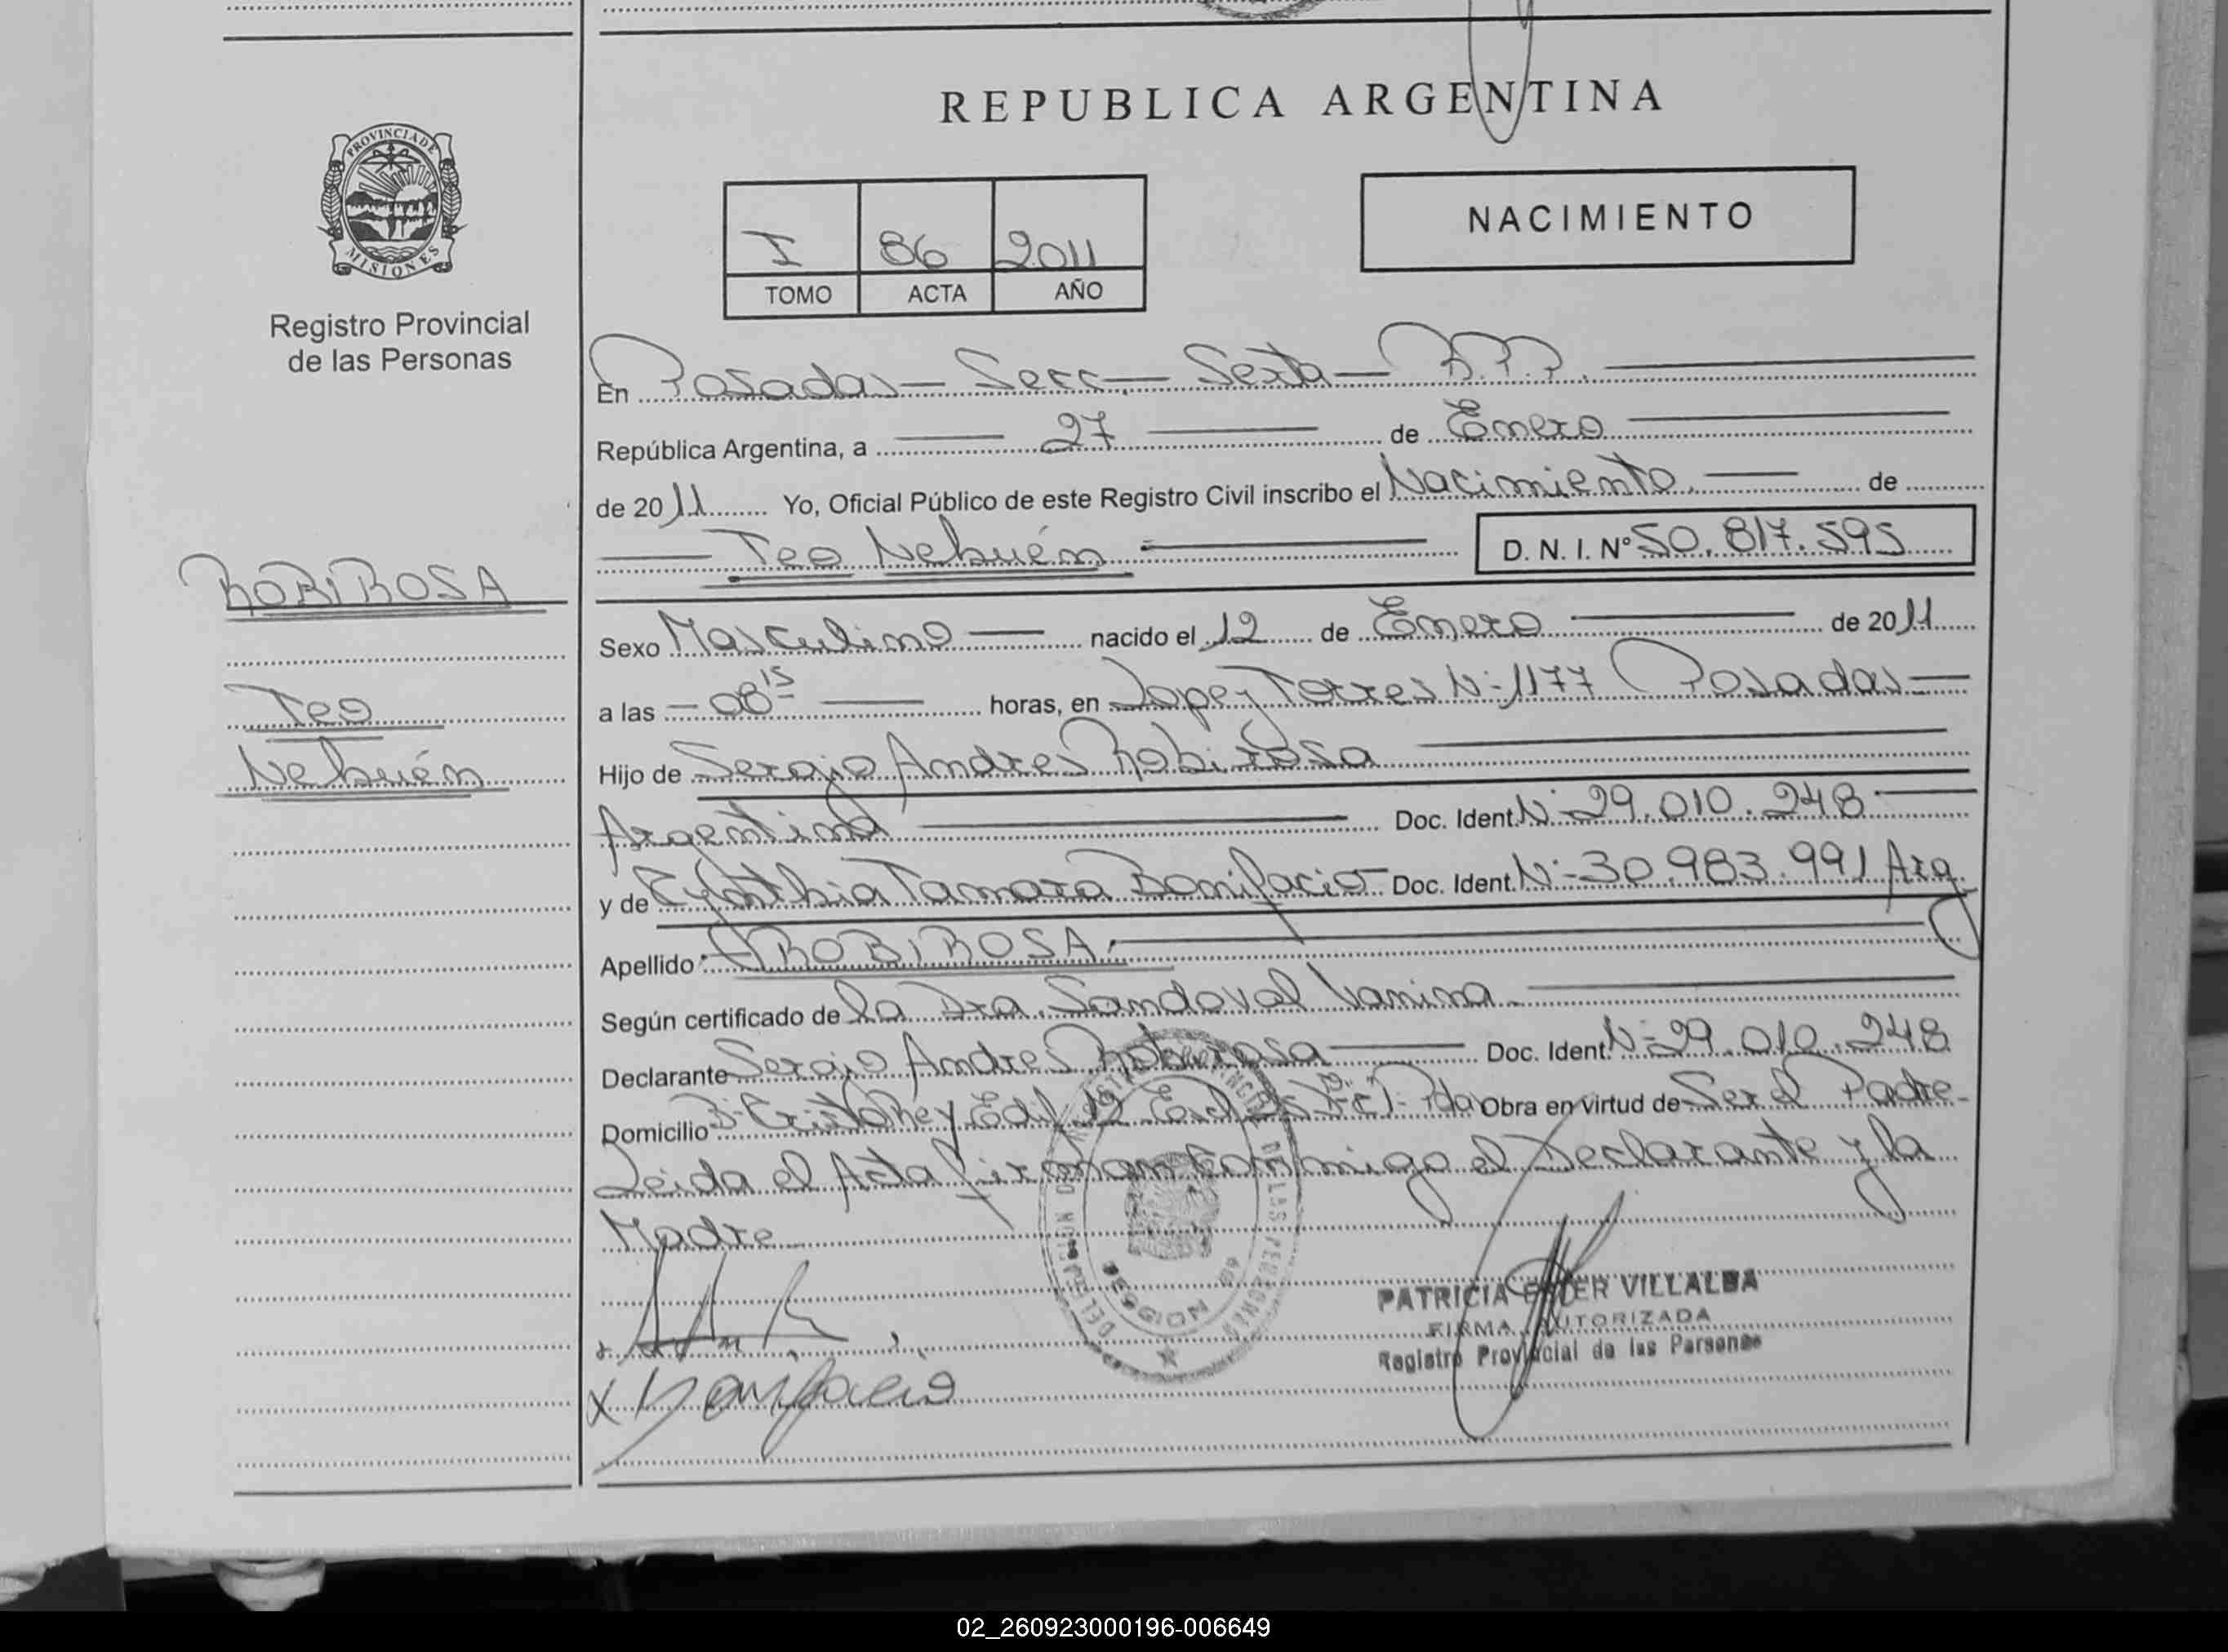 REPUBLICA ARGENTINA
PROVINCIA DE
MISIONES
Registro Provincial
de las Personas
NACIMIENTO
I 86 2011
TOMO ACTA AÑO
En Posadas - Secc. - Sexta - R.P.P.
República Argentina, a 27 de Enero
de 2011 Yo, Oficial Público de este Registro Civil inscribo el Nacimiento. de
Teo Nehuén D. N. I. Nº 50.817.595
ROBIROSA
Teo
Nehuén
Sexo Masculino nacido el 12 de Enero de 2011
a las - 08 15 horas, en Lopez Torres Nº 1177 Posadas -
Hijo de Sergio Andres Robirosa
Argentina Doc. Ident. Nº 29.010.248
y de Cynthia Tamara Bonifacio Doc. Ident. Nº 30.983.991 Arg
Apellido: ROBIROSA.
Según certificado de la Dra. Sandoval Vanina.
Declarante Sergio Andres Robirosa Doc. Ident. Nº 29.010.248
Domicilio Bº Cristo Rey Edif 12 Obra en virtud de Ser el Padre -
Leida el Acta firman conmigo el Declarante y la
Madre
PATRICIA ESTER VILLALBA
FIRMA AUTORIZADA
Registro Provincial de las Personas
Bonifacio
02_260923000196-006649